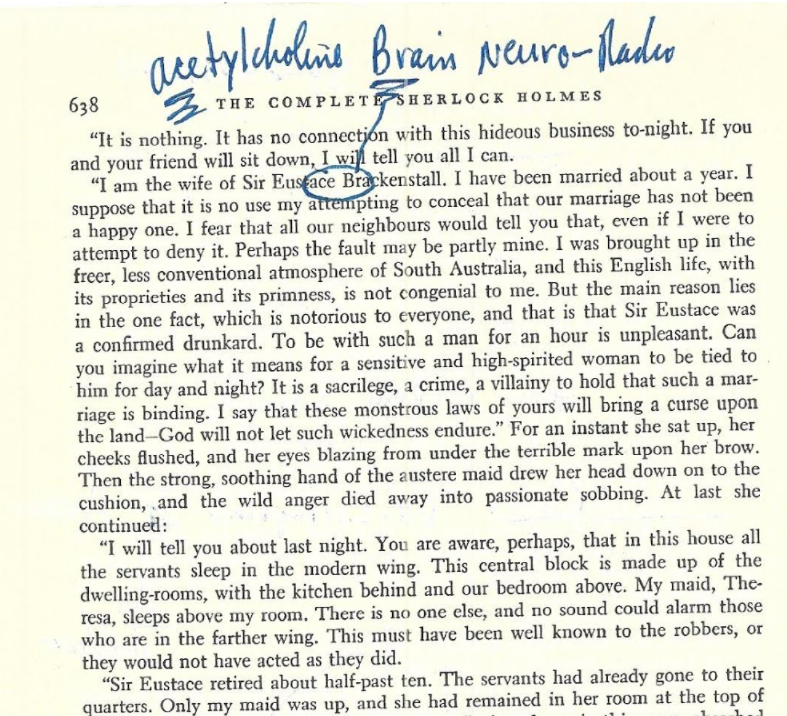 acetylcholine Brain Neuro-Radio
638 THE COMPLETE SHERLOCK HOLMES
“It is nothing. It has no connection with this hideous business to-night. If you
and your friend will sit down, I will tell you all I can.
“I am the wife of Sir Eustace Brackenstall. I have been married about a year. I
suppose that it is no use my attempting to conceal that our marriage has not been
a happy one. I fear that all our neighbours would tell you that, even if I were to
attempt to deny it. Perhaps the fault may be partly mine. I was brought up in the
freer, less conventional atmosphere of South Australia, and this English life, with
its proprieties and its primness, is not congenial to me. But the main reason lies
in the one fact, which is notorious to everyone, and that is that Sir Eustace was
a confirmed drunkard. To be with such a man for an hour is unpleasant. Can
you imagine what it means for a sensitive and high-spirited woman to be tied to
him for day and night? It is a sacrilege, a crime, a villainy to hold that such a mar-
riage is binding. I say that these monstrous laws of yours will bring a curse upon
the land—God will not let such wickedness endure.” For an instant she sat up, her
cheeks flushed, and her eyes blazing from under the terrible mark upon her brow.
Then the strong, soothing hand of the austere maid drew her head down on to the
cushion, and the wild anger died away into passionate sobbing. At last she
continued:
“I will tell you about last night. You are aware, perhaps, that in this house all
the servants sleep in the modern wing. This central block is made up of the
dwelling-rooms, with the kitchen behind and our bedroom above. My maid, The-
resa, sleeps above my room. There is no one else, and no sound could alarm those
who are in the farther wing. This must have been well known to the robbers, or
they would not have acted as they did.
“Sir Eustace retired about half-past ten. The servants had already gone to their
quarters. Only my maid was up, and she had remained in her room at the top of